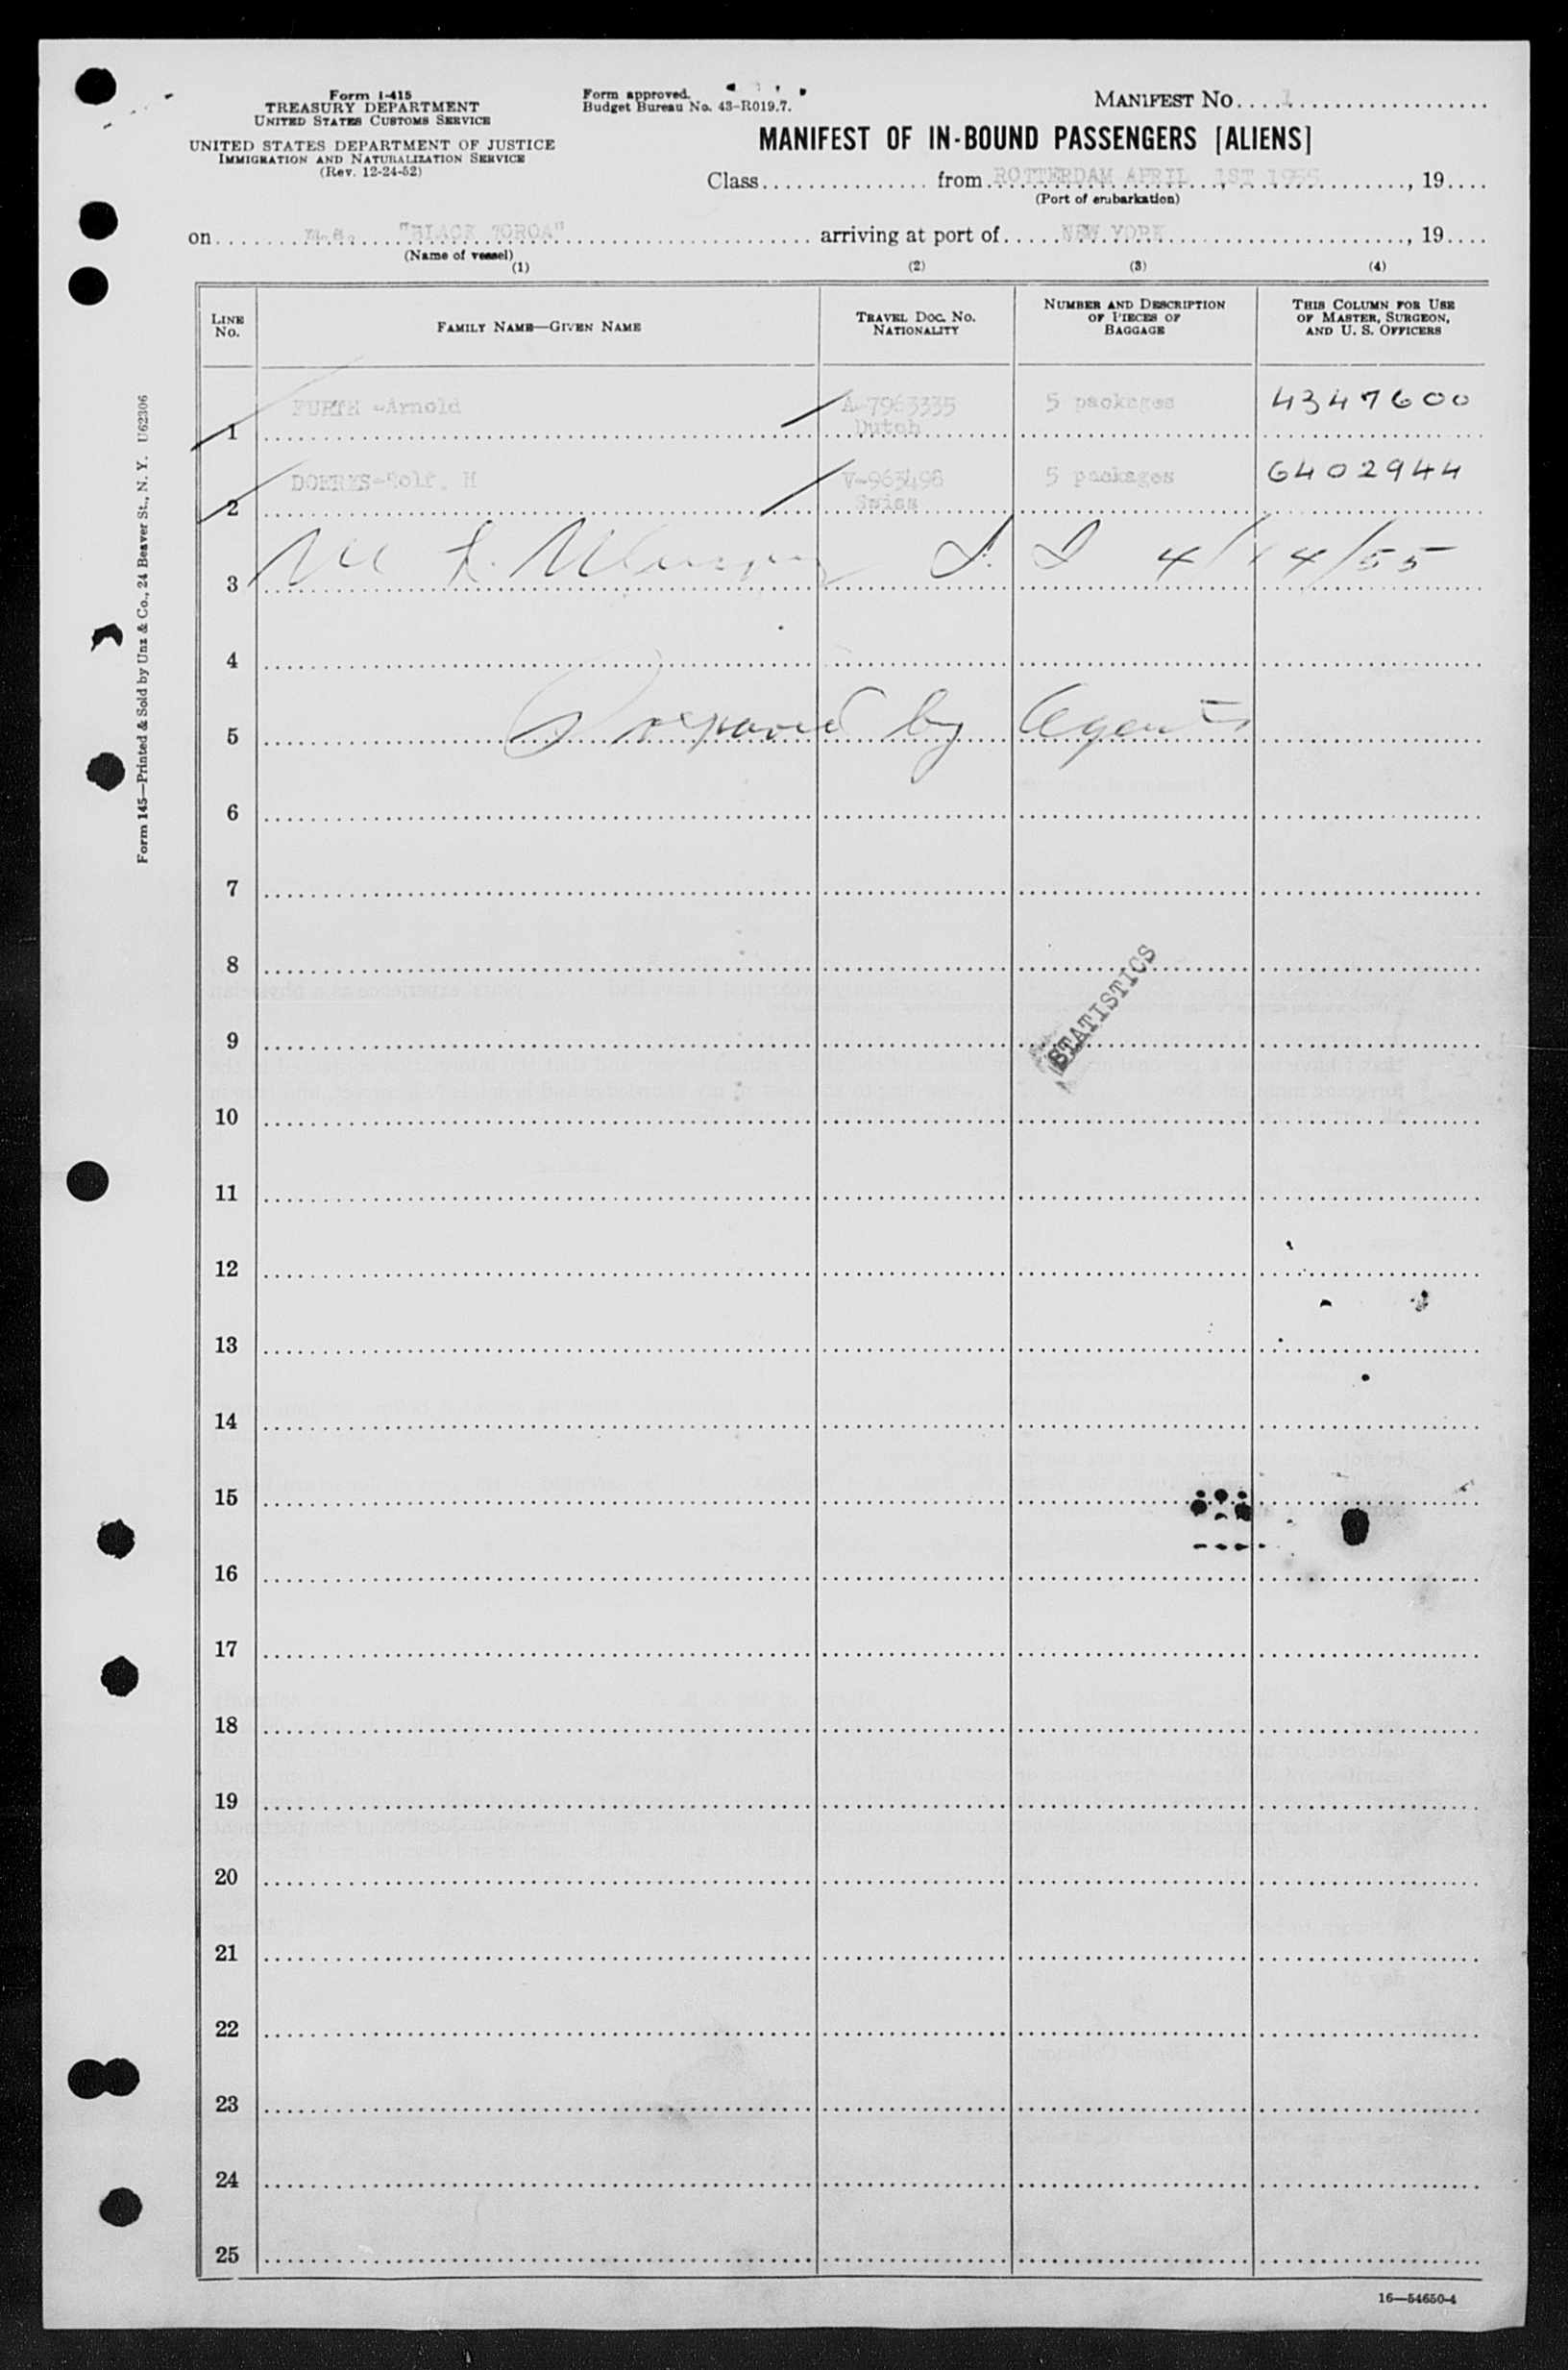 Form I-415
TREASURY DEPARTMENT
UNITED STATES CUSTOMS SERVICE
UNITED STATES DEPARTMENT OF JUSTICE
IMMIGRATION AND NATURALIZATION SERVICE
(Rev. 12-24-52)
Form approved.
Budget Bureau No. 43-R019.7.
MANIFEST NO. 1
MANIFEST OF IN-BOUND PASSENGERS [ALIENS]
Class from ROTTERDAM APRIL 1ST 1955, 19
(Port of embarkation)
on m.s. "BLACK" arriving at port of NEW YORK, 19
(Name of vessel)
(1) (2) (3) (4)
LINE NO.
FAMILY NAME—GIVEN NAME
TRAVEL DOC. NO. NATIONALITY
NUMBER AND DESCRIPTION OF PIECES OF BAGGAGE
THIS COLUMN FOR USE OF MASTER, SURGEON, AND U. S. OFFICERS
1 FURTH -Arnold A-7963335 5 packages 4347600
Dutch
2 V-963498 5 packages 6402944
Swiss
3 4/14/55
4
5 Prepared by Agents
6
7
8
STATISTICS
9
10
11
12
13
14
15
16
17
18
19
20
21
22
23
24
25
16—54650-4
Form 145—Printed & Sold by Unz & Co., 24 Beaver St., N. Y. U62306